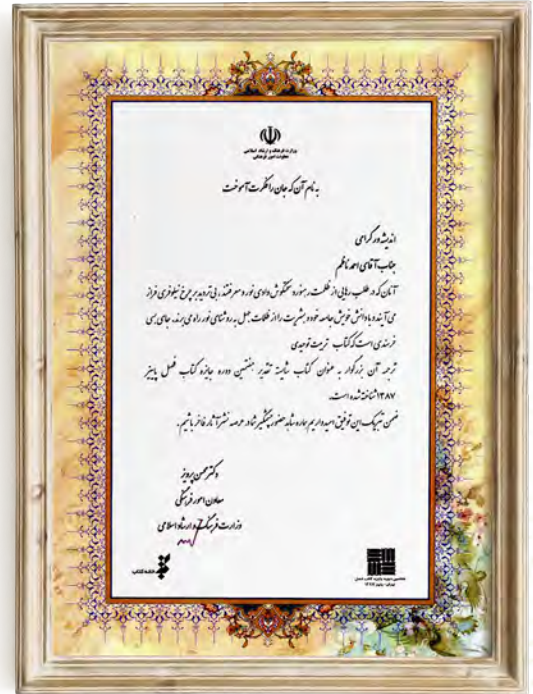 وزارت فرهنگ و ارشاد اسلامی
معاونت امور فرهنگی
به نام آن که جان را فکرت آموخت
اندیشه ور گرامی
جناب آقای احمد ناظم
آنان که در طلب رهایی از ظلمت رهنورد سختکوش وادی نور و معرفتند، بی تردید بر چرخ نیلوفری فراز
می آیند و با دانش خویش جامعه خود و بشریت را از ظلمات جهل به روشنای نور راه می برند. جای بسی
خرسندی است که کتاب تربیت توحیدی
ترجمه آن بزرگوار به عنوان کتاب شایسته تقدیر هفتمین دوره جایزه کتاب فصل پاییز
۱۳۸۷ شناخته شده است.
ضمن تبریک این توفیق امیدواریم هماره شاهد حضور چشمگیر شما در عرصه نشر آثار فاخر باشیم.
دکتر محسن پرویز
معاون امور فرهنگی
وزارت فرهنگ و ارشاد اسلامی
خانه کتاب
هفتمین دوره جایزه کتاب فصل